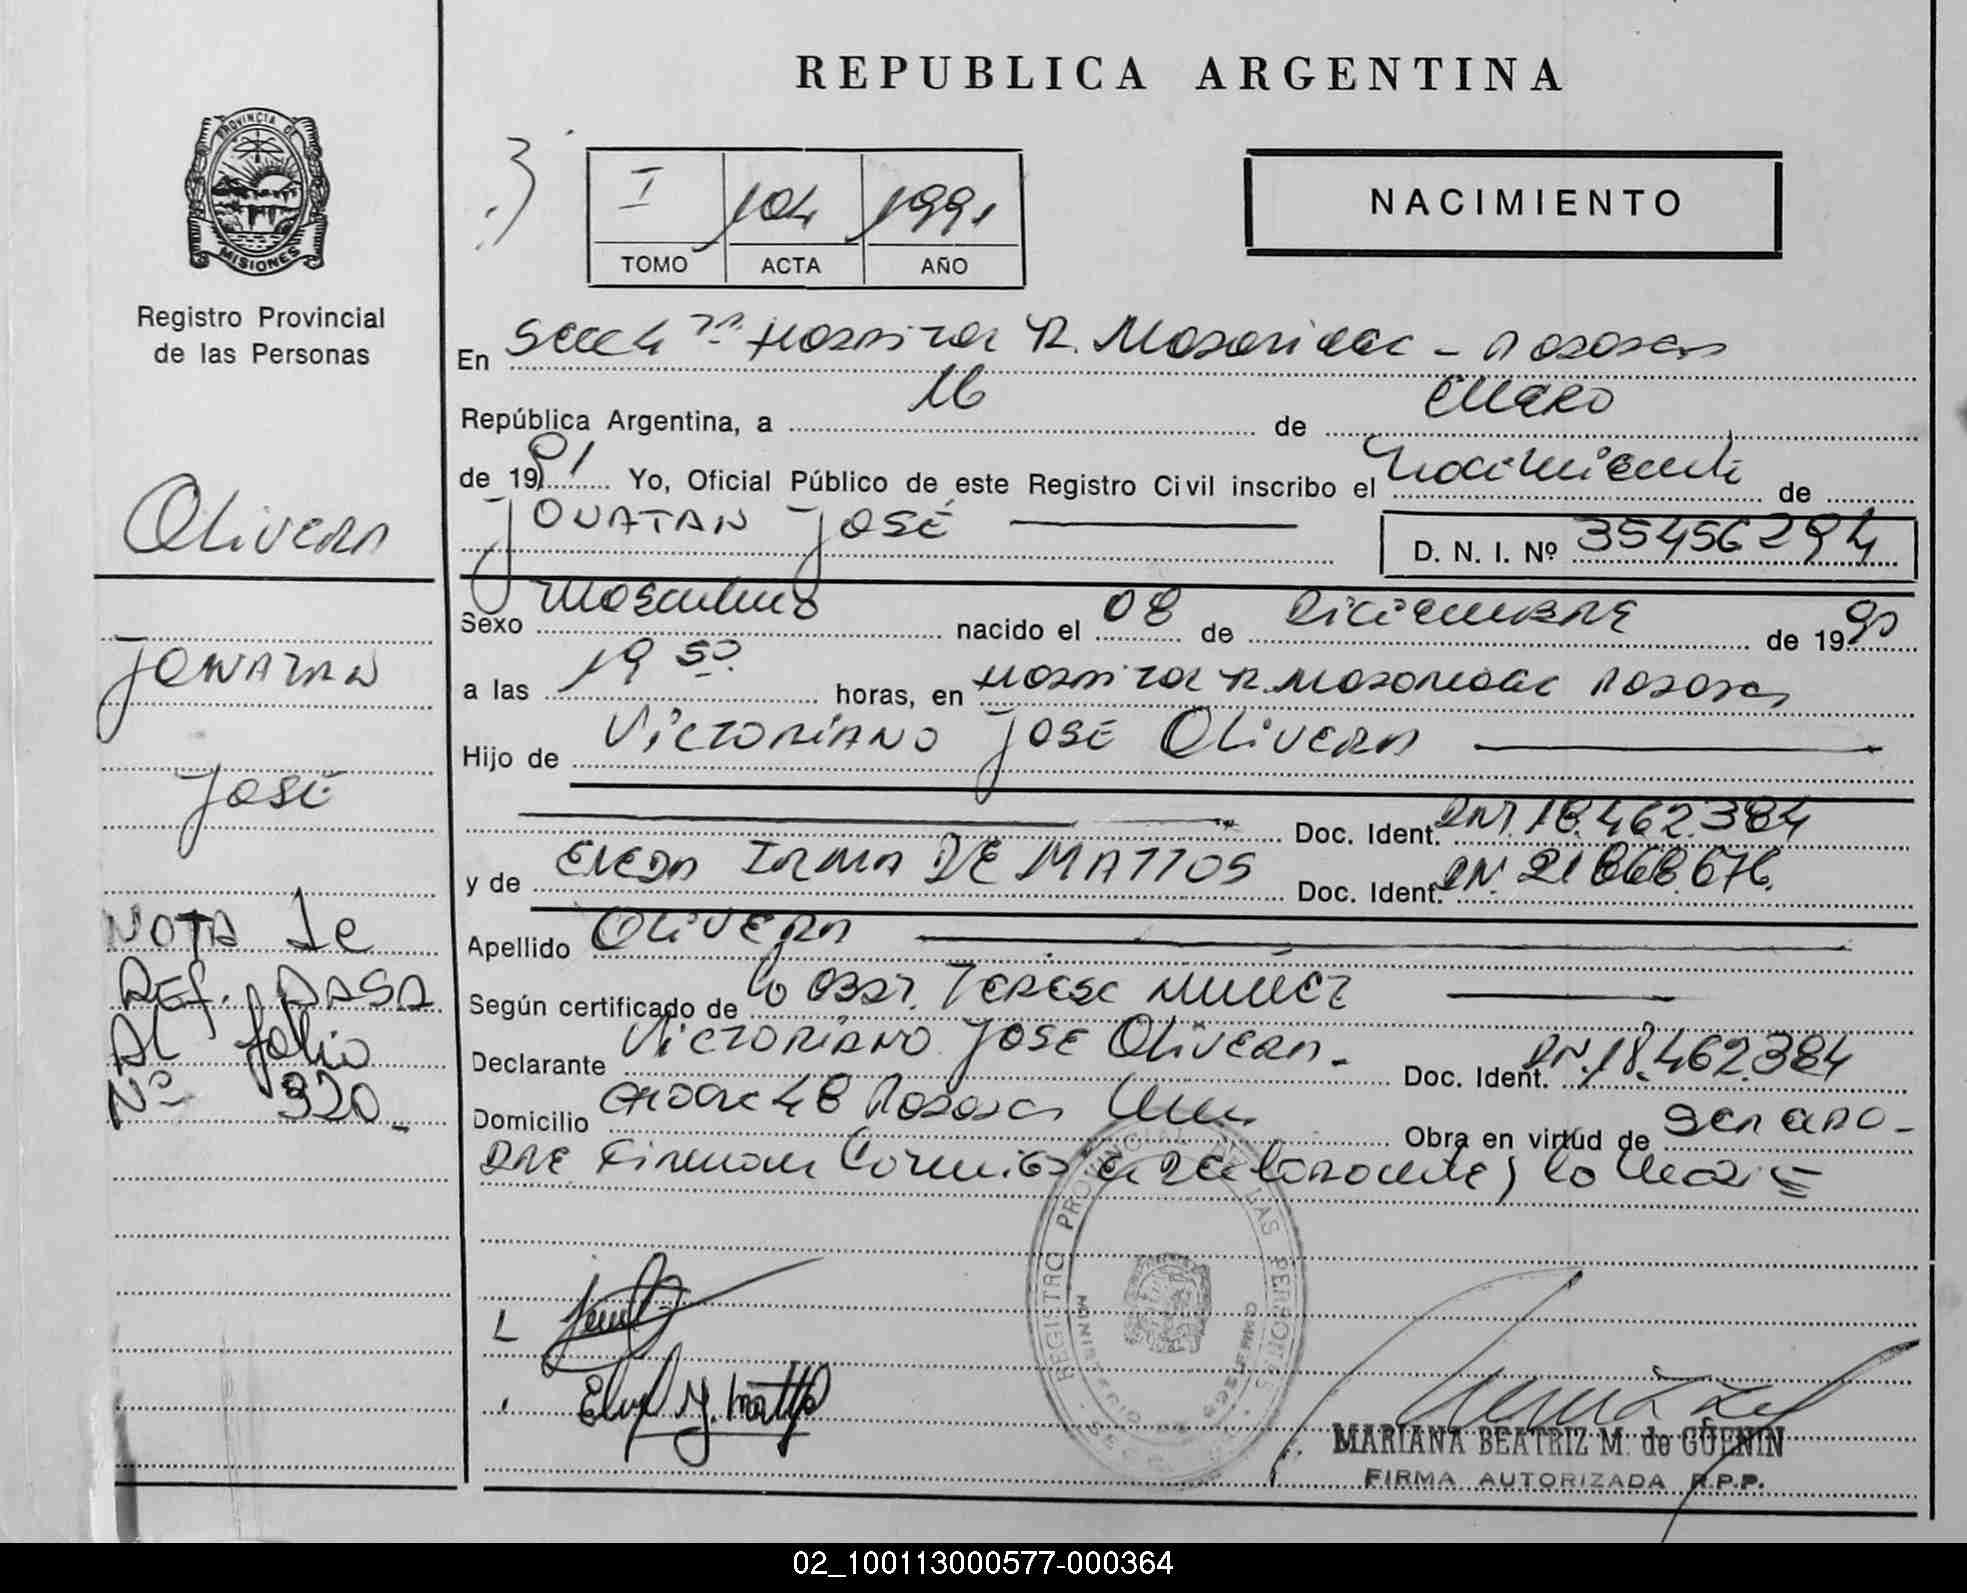 REPUBLICA ARGENTINA
PROVINCIA DE
MISIONES
Registro Provincial
de las Personas
3)
I 104 1991
TOMO ACTA AÑO
NACIMIENTO
En Secc 4 ta Hospital R. Madariaga - Posadas
República Argentina, a 16 de Enero
de 1991 Yo, Oficial Público de este Registro Civil inscribo el Nacimiento de
JONATAN JOSÉ D. N. I. Nº 35456294
Sexo Masculino nacido el 08 de Diciembre de 1990
a las 19 50 horas, en Hospital R. Madariaga Posadas
Hijo de Victoriano José Olivera
Doc. Ident. DNI. 18.462.384
y de IRMA DE MATTOS Doc. Ident. DNI. 21.868.676.
Apellido Olivera
Según certificado de la Obst. Teresa Nuñez
Declarante Victoriano José Olivera - Doc. Ident. DNI. 18.462.384
Domicilio 48 Posadas Obra en virtud de Ser
DRE Firman Conmigo el declarante y la Madre
Olivera
JONATAN
José
NOTA de
REF. PASA
AL folio
Nº 320
REGISTRO PROVINCIAL DE LAS PERSONAS
MINISTERIO DE GOBIERNO
MARIANA BEATRIZ M. de GÜENIN
FIRMA AUTORIZADA R.P.P.
02_100113000577-000364